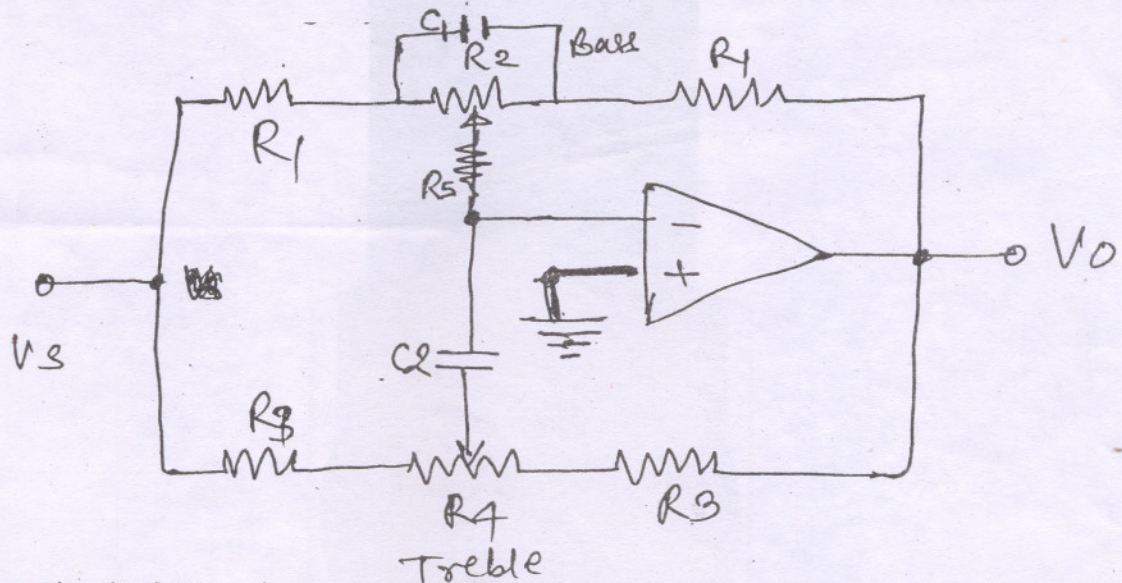 C1
R2
Bass
R1
R1
R5
−
+
Vo
Vs
C2
R3
R4
R3
Treble